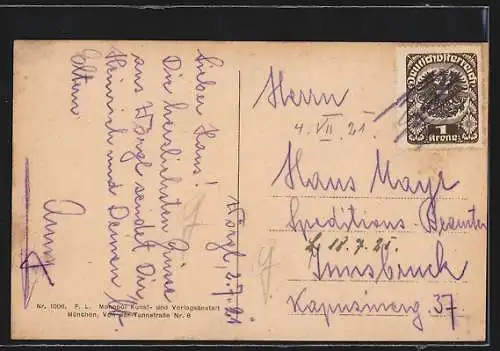 Lieber Hans!
Die herzlichsten Grüsse
aus Wörgl sendet Dir
Heinrich und Deinen
Eltern
Anna
Wörgl, 2.7.21
Herrn
4. VII. 21.
Hans Mayr
Speditions-Beamter
18.7.21.
Innsbruck
37.
Deutschösterreich
1
Krone
Nr. 1006. F. L. Monopol Kunst- und Verlagsanstalt
München, Von der Tannstraße Nr. 8